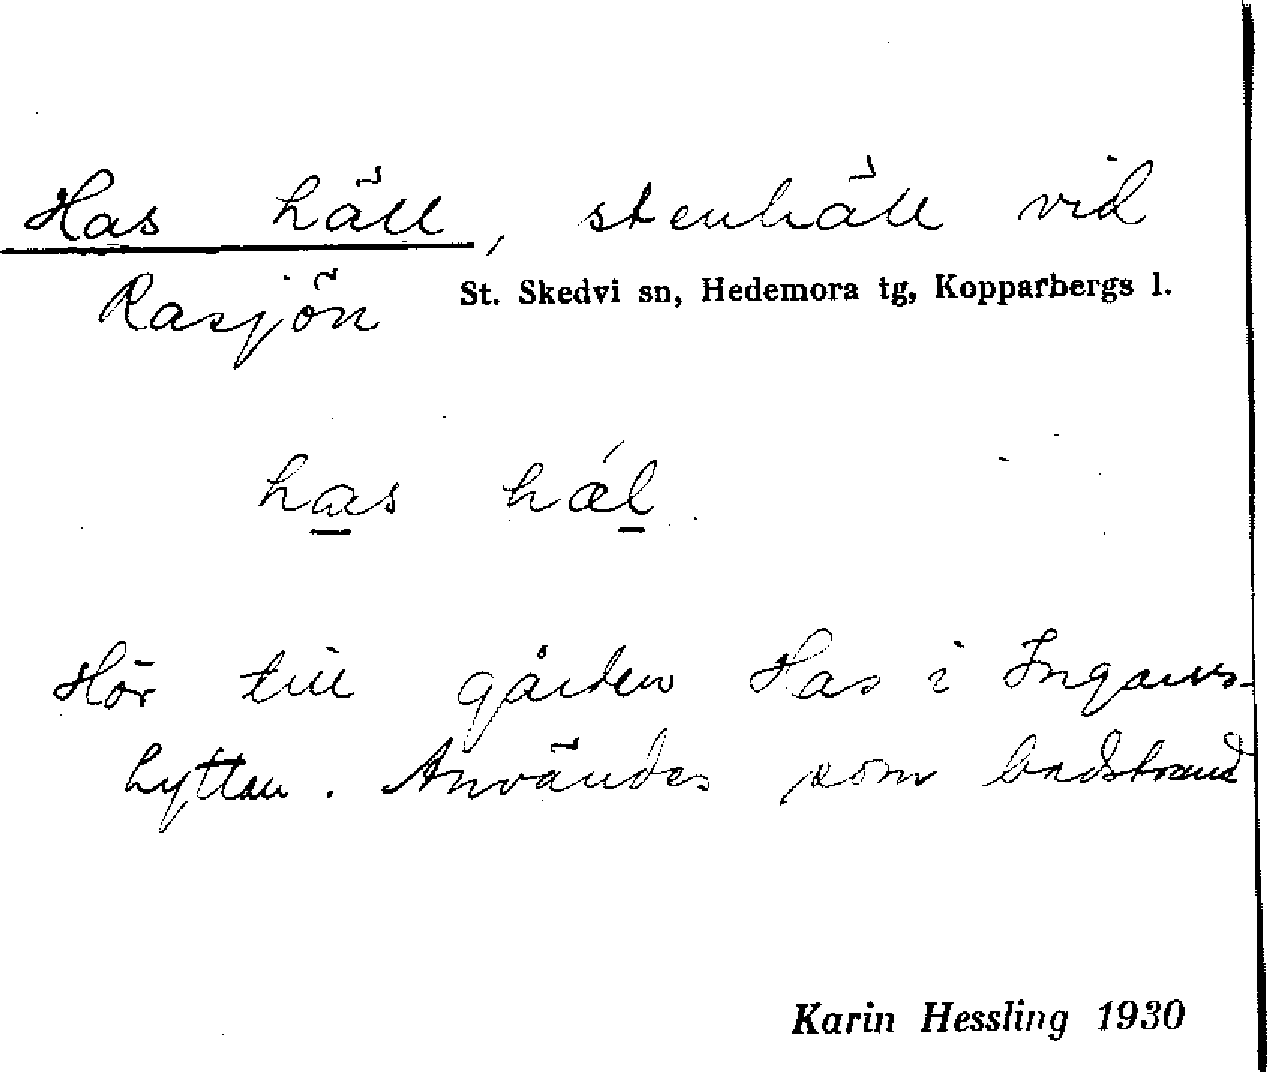 Has häll, stenhäll vid
Rasjön St. Skedvi sn, Hedemora tg, Kopparbergs l.
has hǽl
Hör till gården Has i Ingarvs-
hyttan. Användes som badstrand
Karin Hessling 1930